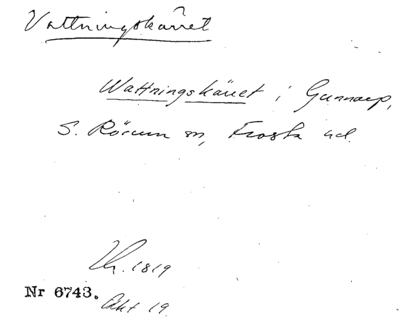 Vattningskärret
Wattningskärret i Gunnarp,
S. Rörum sn, Frosta hd.
1819
Nr 6743.
Akt 19